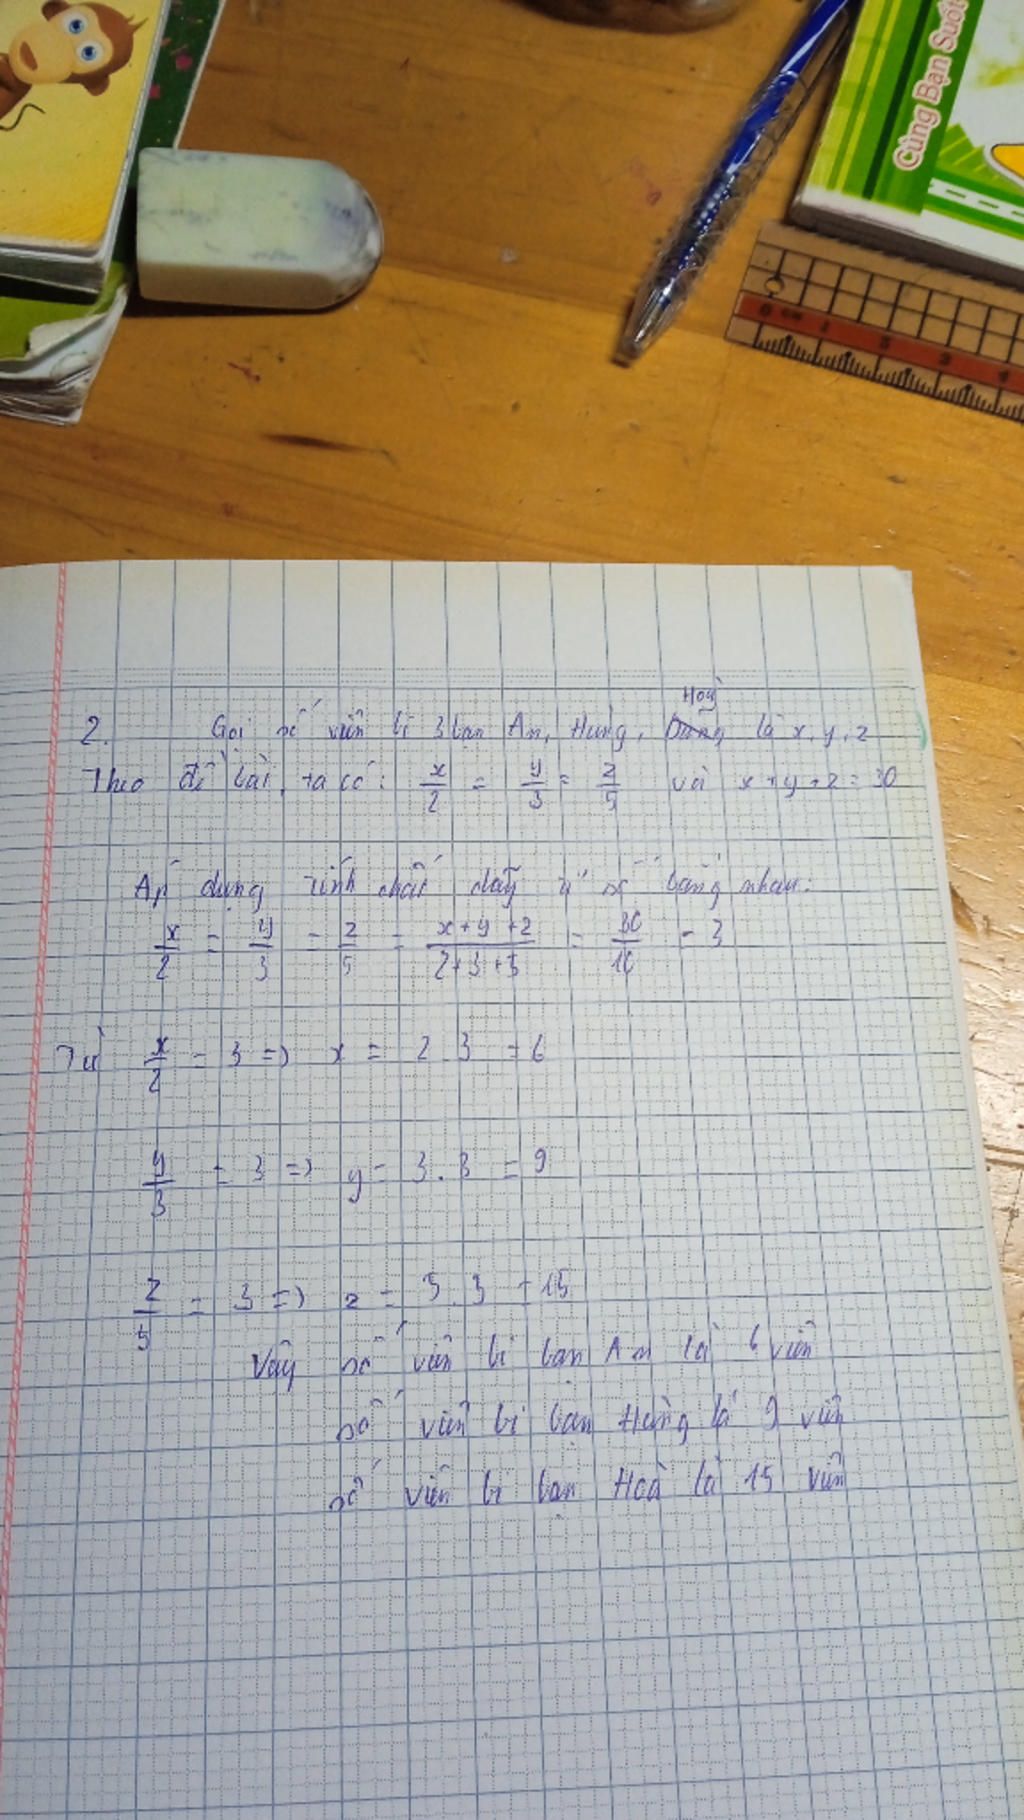 Cùng Bạn Suốt
0 cm 1 2 3 4
Hoà
2. Gọi số viên bi 3 bạn An, Hùng, là x, y, z
Theo đề bài, ta có: x/2 = y/3 = z/5 và x+y+z = 30
Áp dụng tính chất dãy tỉ số bằng nhau:
x/2 = y/3 = z/5 = (x+y+z)/(2+3+5) = 30/10 = 3
Từ x/2 = 3 => x = 2.3 = 6
y/3 = 3 => y = 3.3 = 9
z/5 = 3 => z = 5.3 = 15
Vậy số viên bi bạn An là 6 viên
số viên bi bạn Hùng là 9 viên
số viên bi bạn Hoà là 15 viên